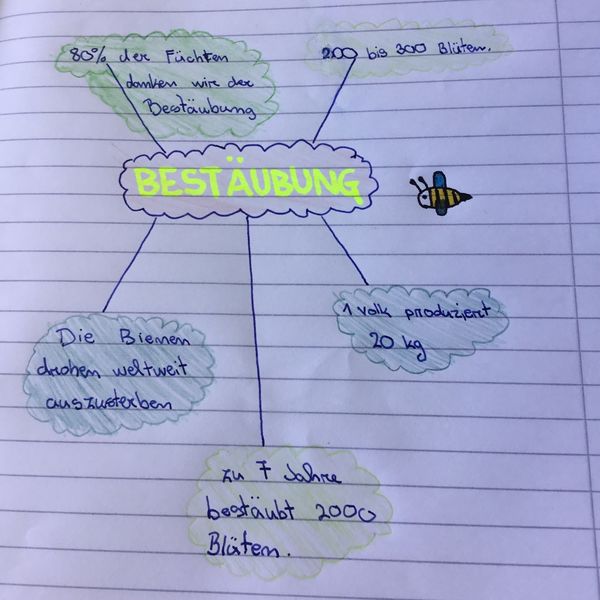 80% der Füchten
danken wir der
Bestäubung
200 bis 300 Blüten.
BESTÄUBUNG
1 Volk produziert
20 kg
Die Bienen
drohen weltweit
auszusterben
zu 7 Jahre
bestäubt 2000
Blüten.